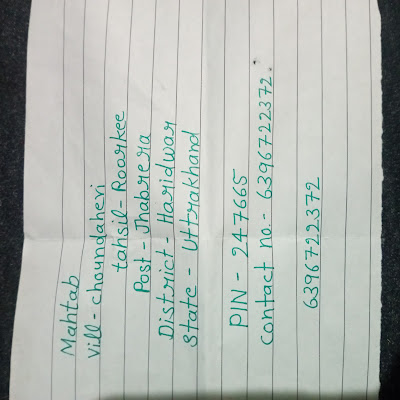 Mahtab
Vill - choundaheri
tahsil - Roorkee
Post - Jhabrera
District - Haridwar
State - Uttrakhand
PIN - 247665
contact no. - 6396722372.
6396722372